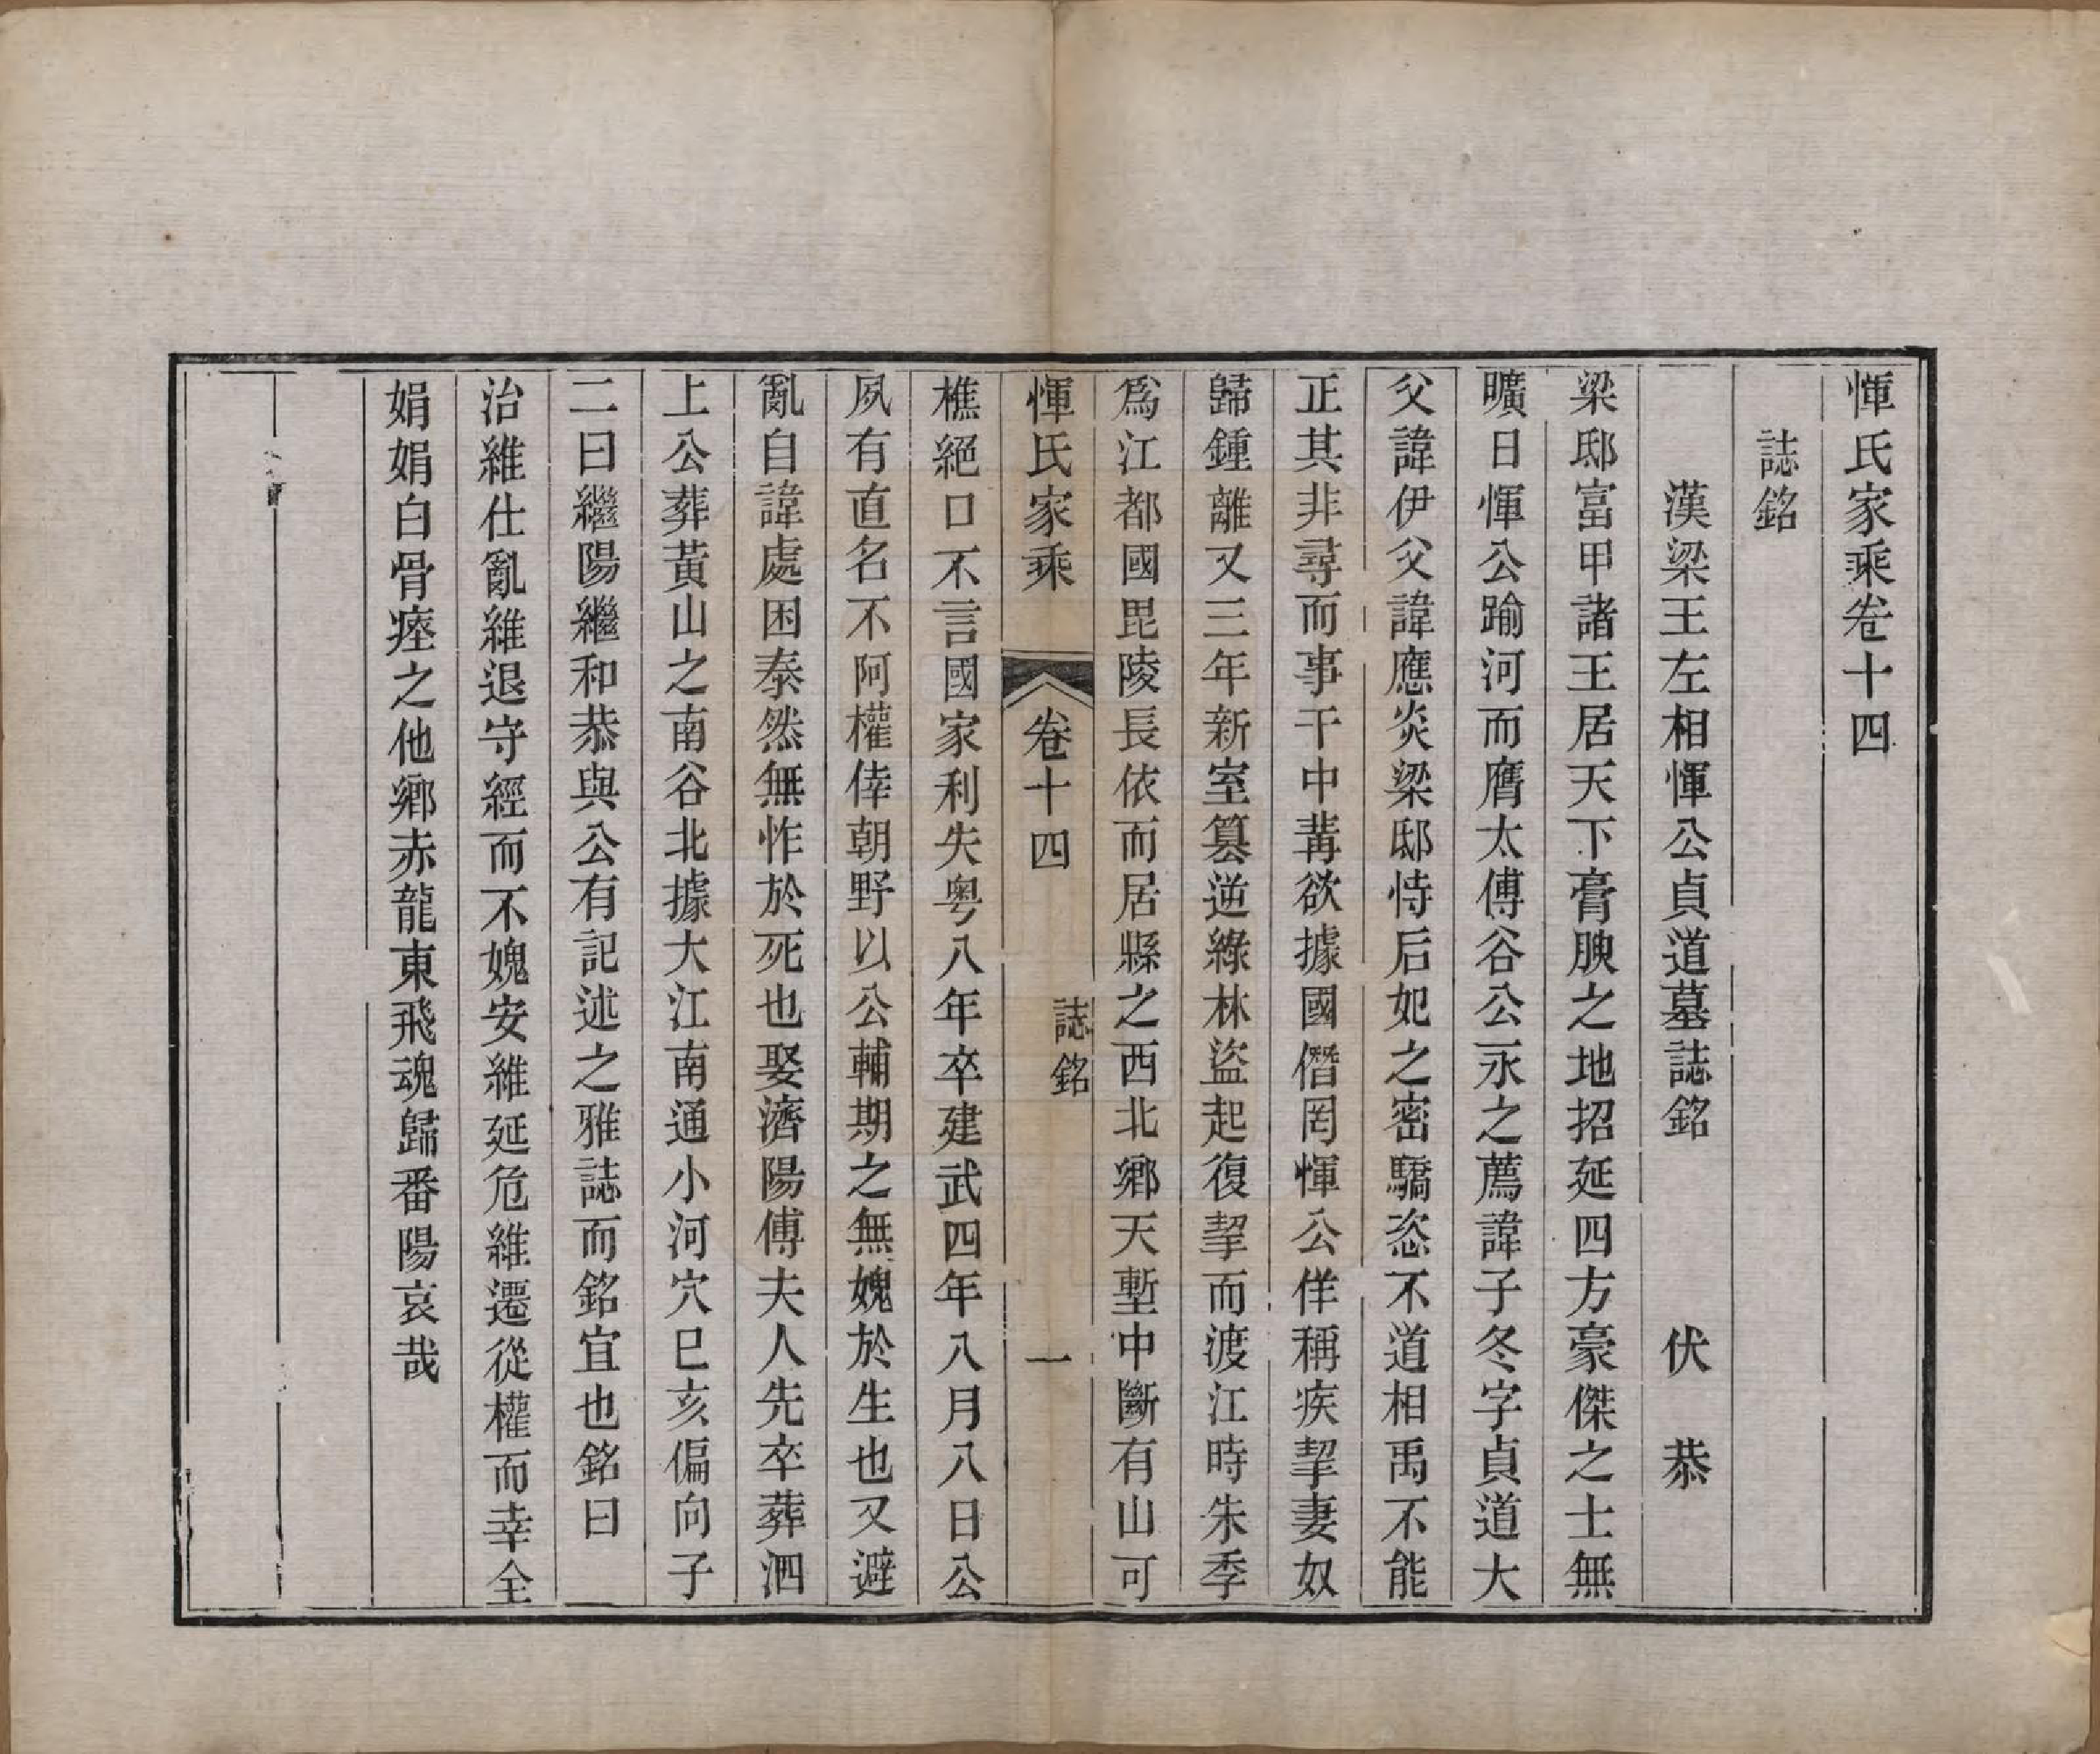 惲氏家乘卷十四
誌銘
漢梁王左相惲公貞道墓誌銘　伏恭
梁邸富甲諸王居天下膏腴之地招延四方豪傑之士無
曠日惲公踰河而膺太傅谷公永之薦諱子冬字貞道大
父諱伊父諱應炎梁邸恃后妃之密驕恣不道相禹不能
正其非尋而事干中冓欲據國僭罔惲公佯稱疾挈妻奴
歸鍾離又三年新室篡逆綠林盜起復挈而渡江時朱季
爲江都國毘陵長依而居縣之西北鄉天塹中斷有山可
惲氏家乘　卷十四　誌銘　一
樵絕口不言國家利失粤八年卒建武四年八月八日公
夙有直名不阿權倖朝野以公輔期之無媿於生也又避
亂自諱處困泰然無怍於死也娶濟陽傅夫人先卒葬泗
上公葬黃山之南谷北據大江南通小河穴巳亥偏向子
二曰繼陽繼和恭與公有記述之雅誌而銘宜也銘曰
治維仕亂維退守經而不媿安維延危維遷從權而幸全
娟娟白骨瘞之他鄉赤龍東飛魂歸番陽哀哉